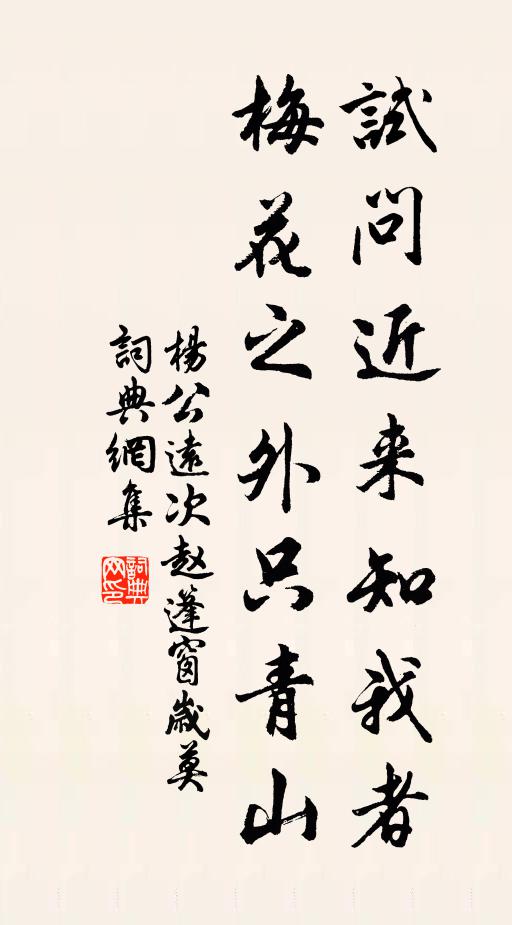 試問近来知我者
梅花之外只青山
楊公遠次赵蓬窗歳莫
詞典網集
詞典网印